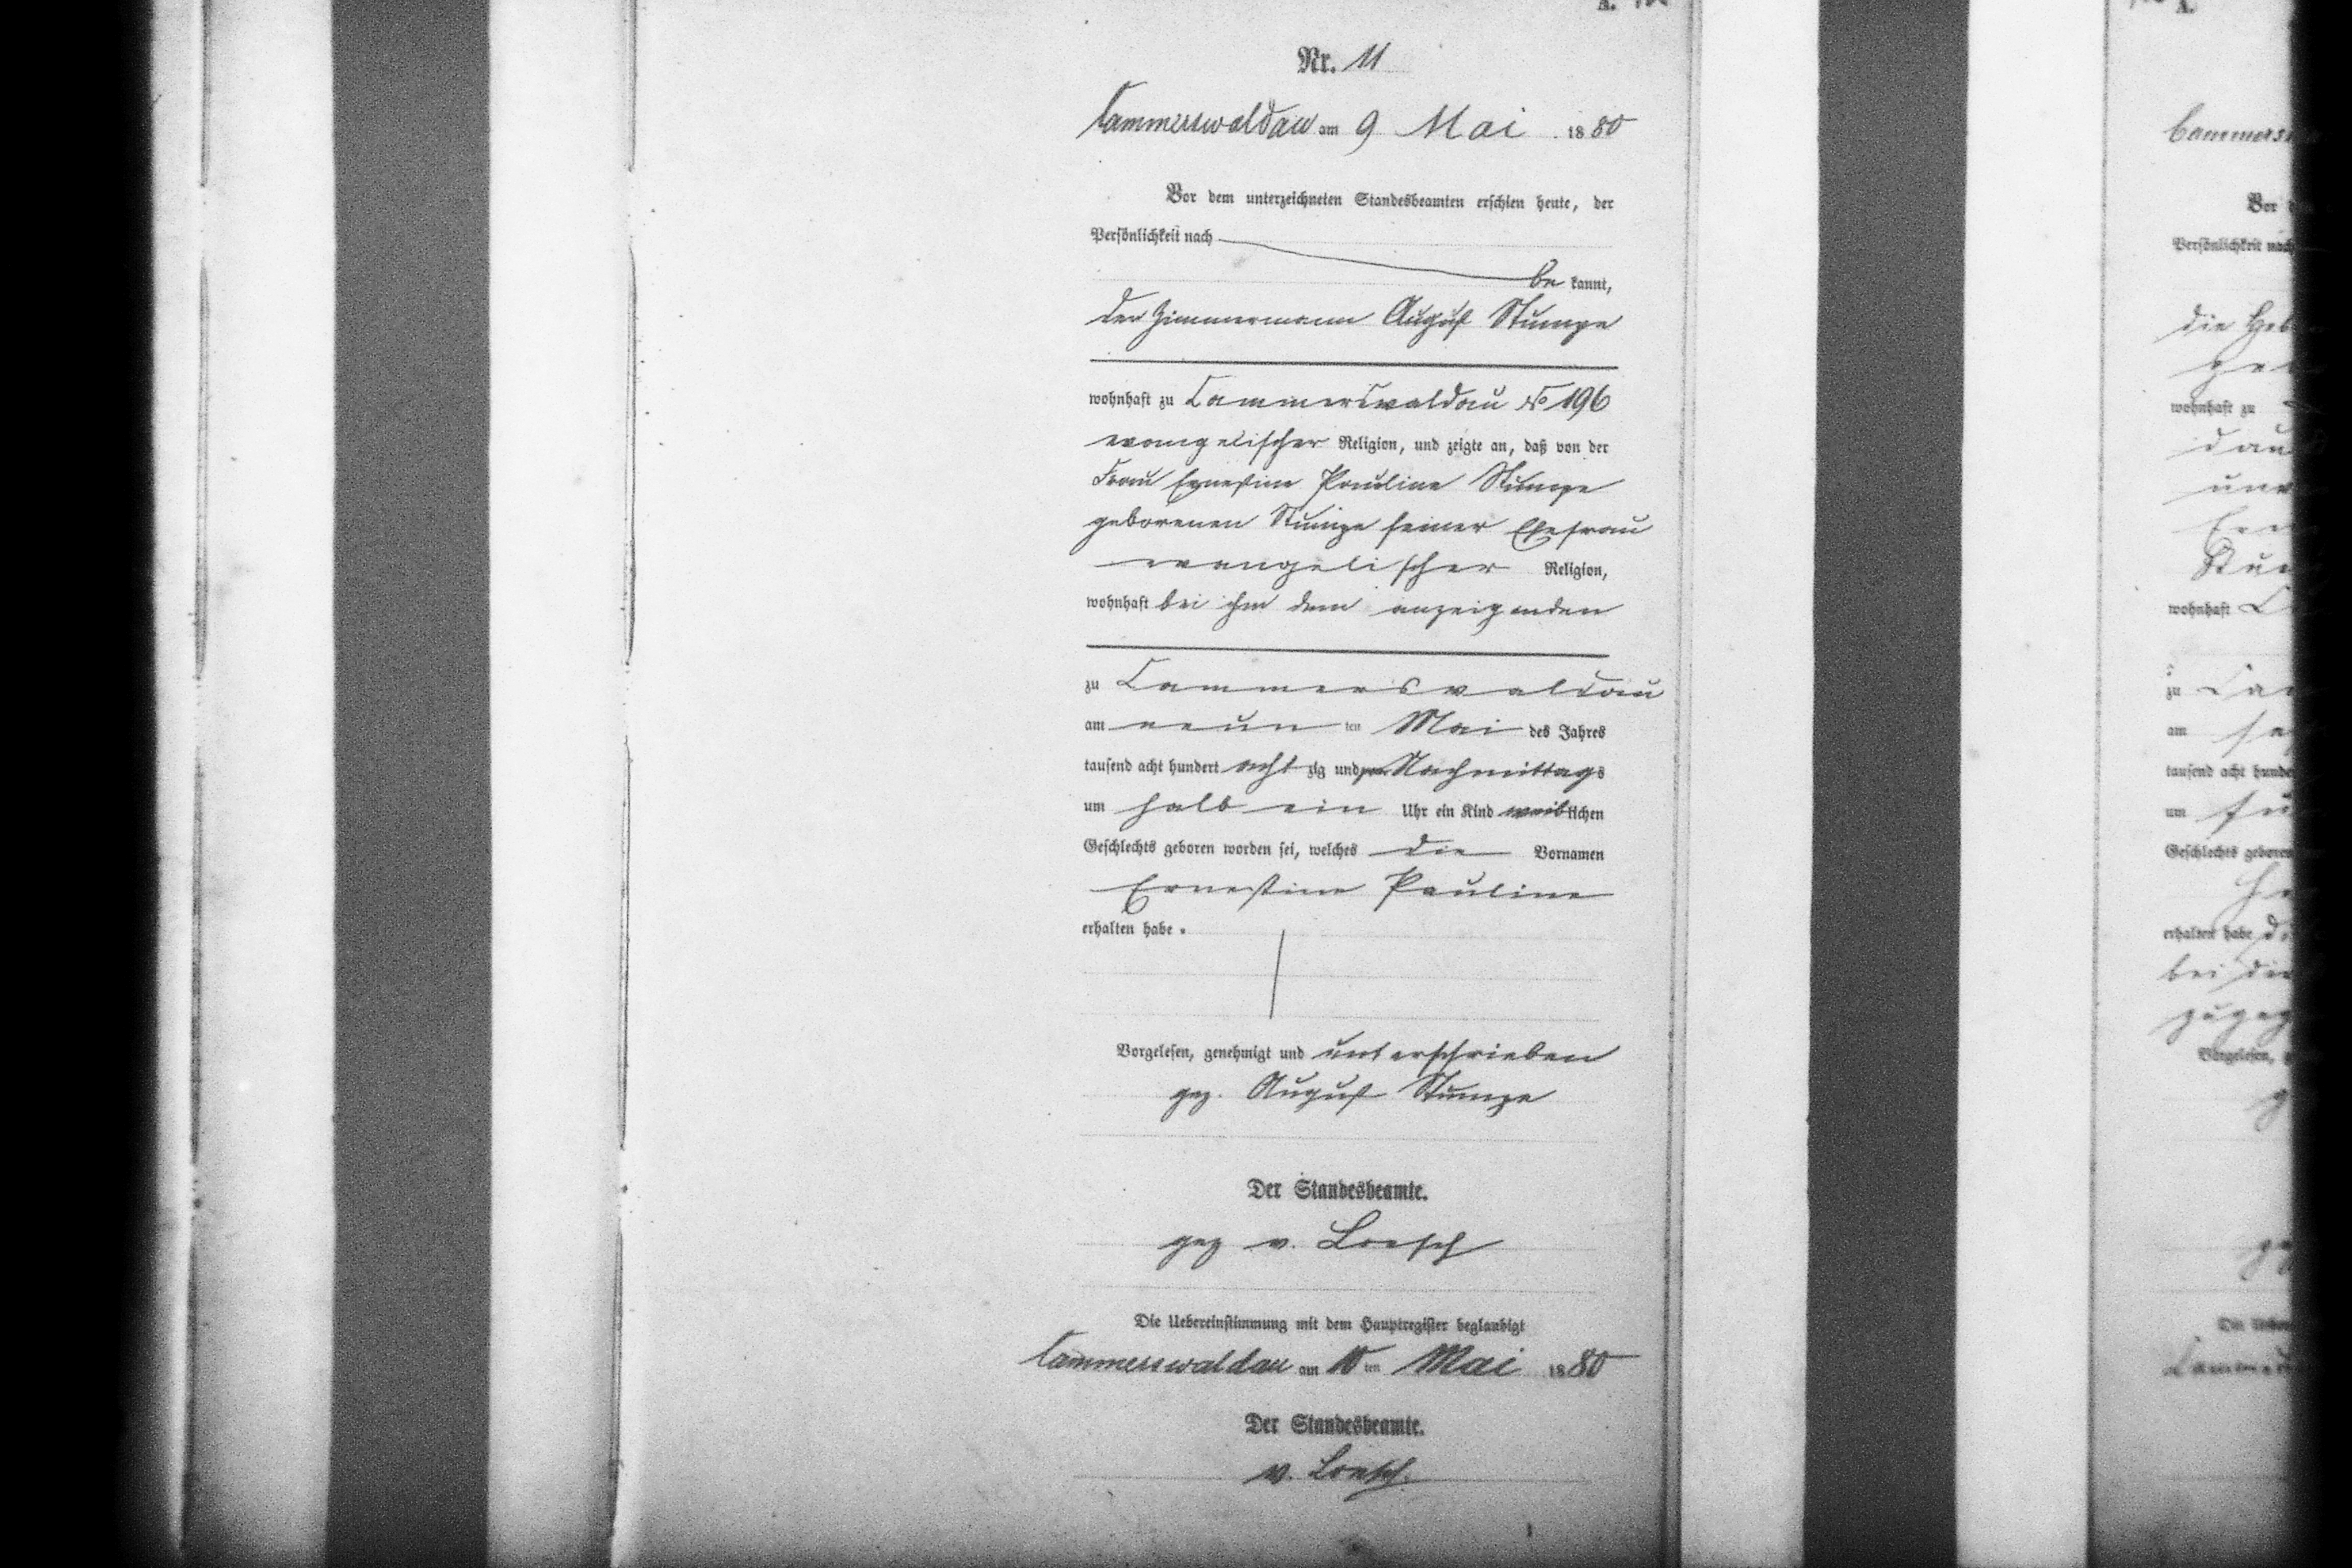 Nr. 11
Cammerswaldau am 9 Mai 1880
Vor dem unterzeichneten Standesbeamten erschien heute, der
Persönlichkeit nach
be kannt,
der Zimmermann August Stumpe
wohnhaft zu Cammerswaldau No 196
evangelischer Religion, und zeigte an, daß von der
Frau Ernestine Pauline Stumpe
geborenen Stumpe seiner Ehefrau
evangelischer Religion,
wohnhaft bei ihm dem anzeigenden
zu Cammerswaldau
am neun ten Mai des Jahres
tausend acht hundert acht zig und Nachmittags
um halb ein Uhr ein Kind weiblichen
Geschlechts geboren worden sei, welches die Vornamen
Ernestine Pauline
erhalten habe.
Vorgelesen, genehmigt und unterschrieben
gez. August Stumpe
Der Standesbeamte.
gez v. Loesch
Die Uebereinstimmung mit dem Hauptregister beglaubigt
Cammerswaldau am 10 ten Mai 1880
Der Standesbeamte.
v. Loesch.
A.
Vor
Persönlichkeit nach
die
wohnhaft zu
wohnhaft
zu
am
tausend acht
um
Geschlechts geboren
erhalten habe
bei